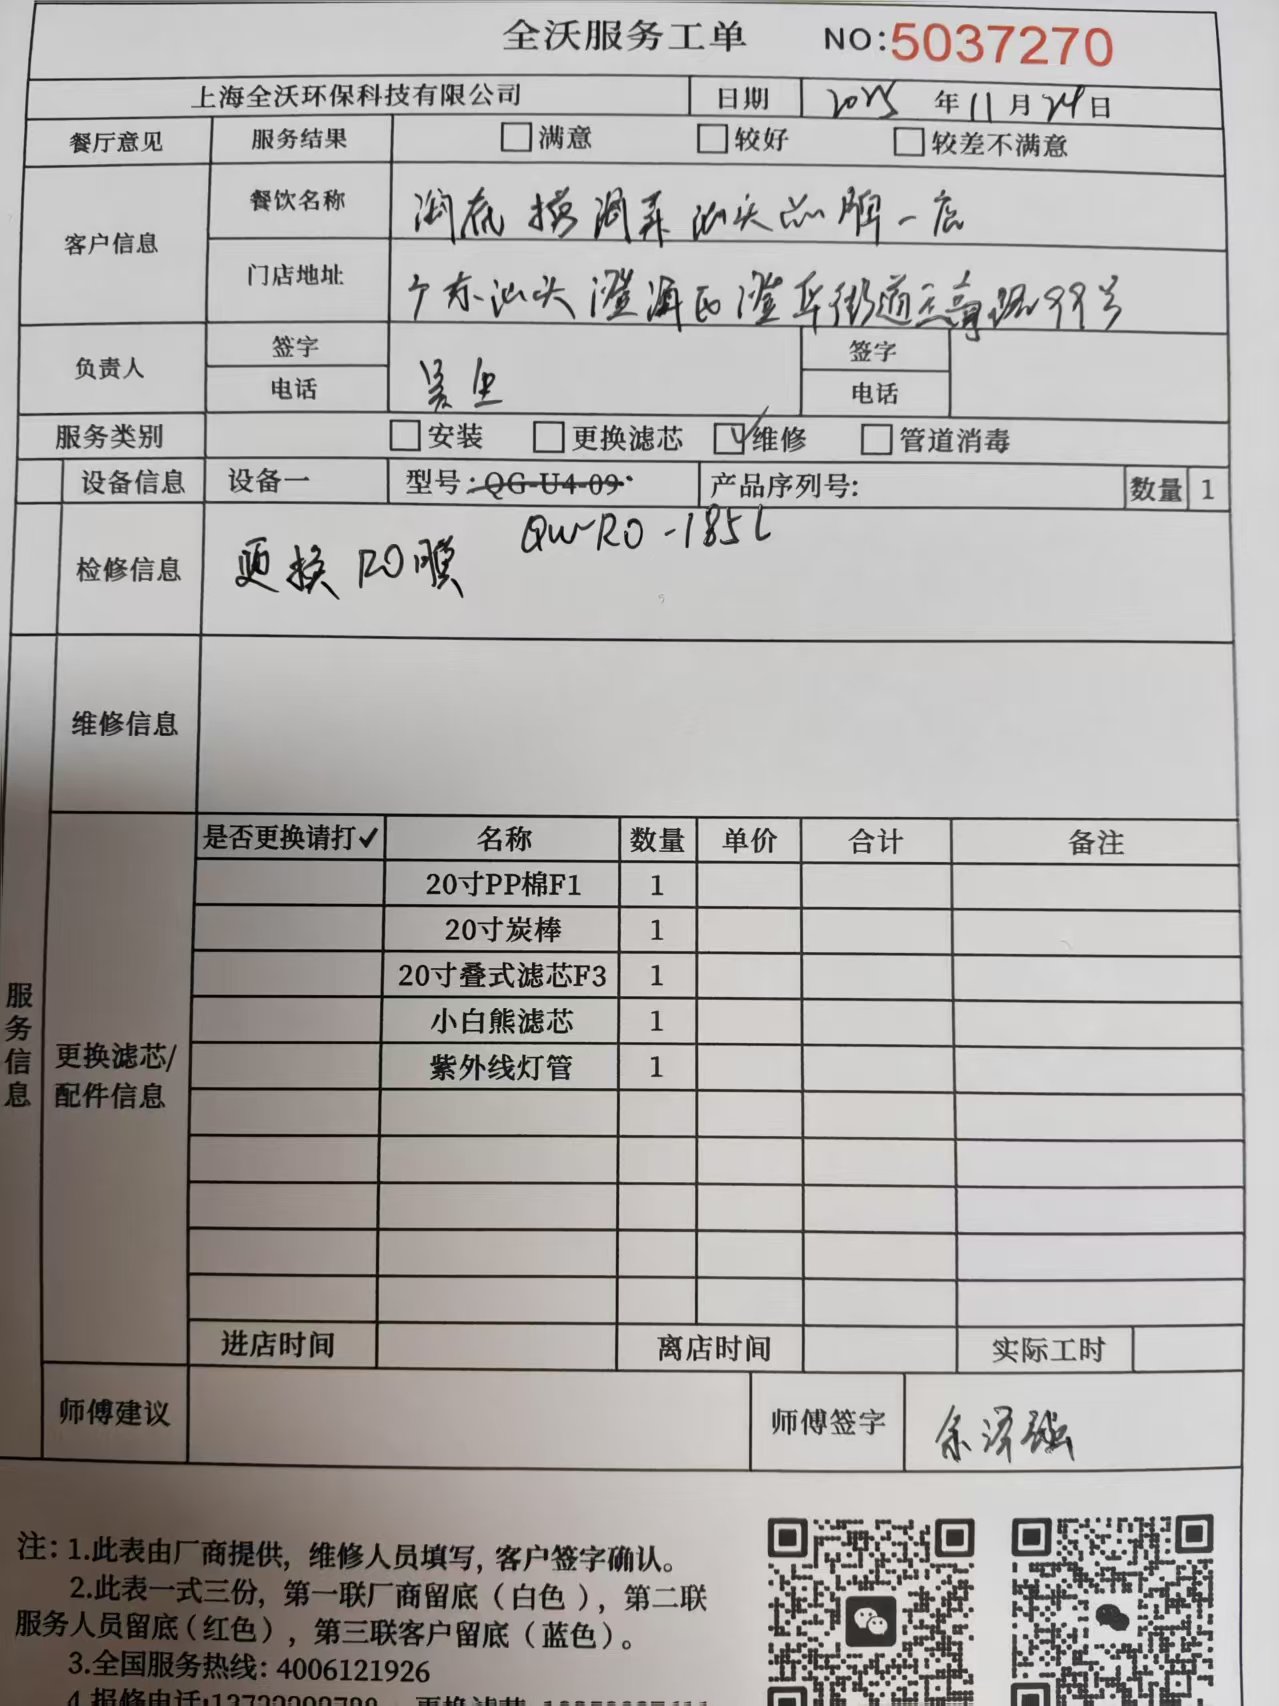 全沃服务工单 NO:5037270
上海全沃环保科技有限公司 日期 2025 年 11 月 24 日
餐厅意见 服务结果 □满意 □较好 □较差不满意
客户信息 餐饮名称 汕头品牌一店
门店地址 广东汕头澄海区澄华街道 路99号
负责人 签字 签字
电话 吴 电话
服务类别 □安装 □更换滤芯 ☑维修 □管道消毒
设备信息 设备一 型号:QG-U4-09 产品序列号: 数量 1
QW-RO-185L
检修信息 更换RO膜
维修信息
是否更换请打✓ 名称 数量 单价 合计 备注
20寸PP棉F1 1
20寸炭棒 1
20寸叠式滤芯F3 1
小白熊滤芯 1
紫外线灯管 1
服务信息
更换滤芯/
配件信息
进店时间 离店时间 实际工时
师傅建议 师傅签字 余泽强
注:1.此表由厂商提供,维修人员填写,客户签字确认。
2.此表一式三份,第一联厂商留底(白色),第二联
服务人员留底(红色),第三联客户留底(蓝色)。
3.全国服务热线:4006121926